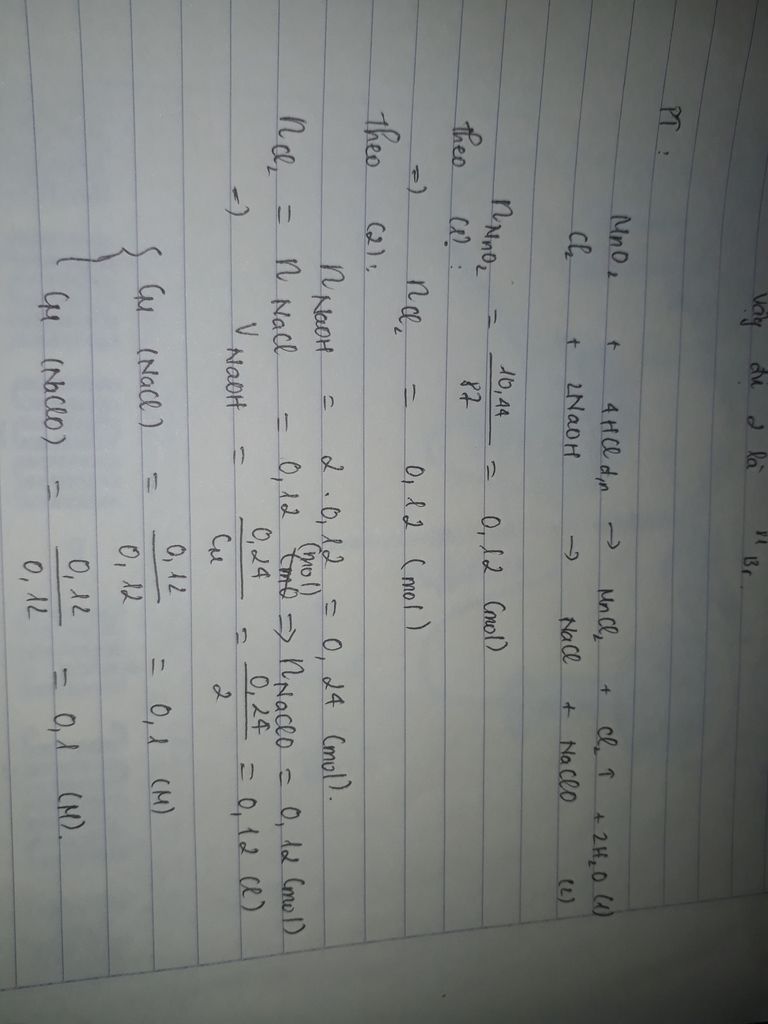 Vậy dd 2 là Br.
PT :
MnO₂ + 4HCl đ,n → MnCl₂ + Cl₂ ↑ + 2H₂O (1)
Cl₂ + 2NaOH → NaCl + NaClO (2)
n MnO₂ = 10,44 / 87 = 0,12 (mol)
theo (1) :
=) n Cl₂ = 0,12 (mol)
Theo (2) :
n NaOH = 2 . 0,12 = 0,24 (mol).
n Cl₂ = n NaCl = 0,12 (mol) => n NaClO = 0,12 (mol)
=) V NaOH = 0,24 / CM = 0,24 / 2 = 0,12 (l)
{ CM (NaCl) = 0,12 / 0,12 = 0,1 (M)
CM (NaClO) = 0,12 / 0,12 = 0,1 (M).